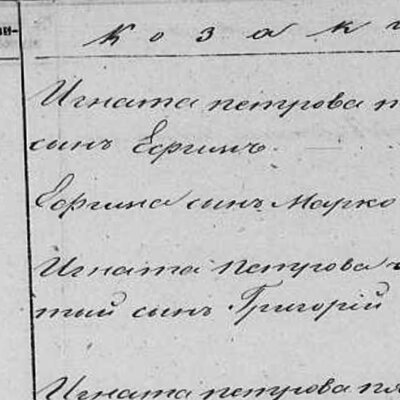 Козаки
Игната петрова п
сынъ Ефримъ.
Ефрима сынъ Марко
Игната Петрова
тый сынъ Григорій
Игната петрова пя